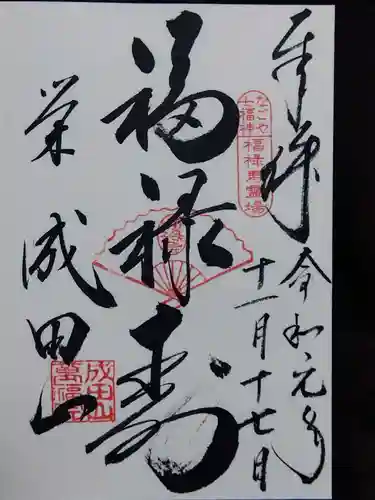 奉拝
令和元年
十一月十七日
なごや
七福神
福禄寿霊場
福禄寿
栄
成田山
成田山
萬福院